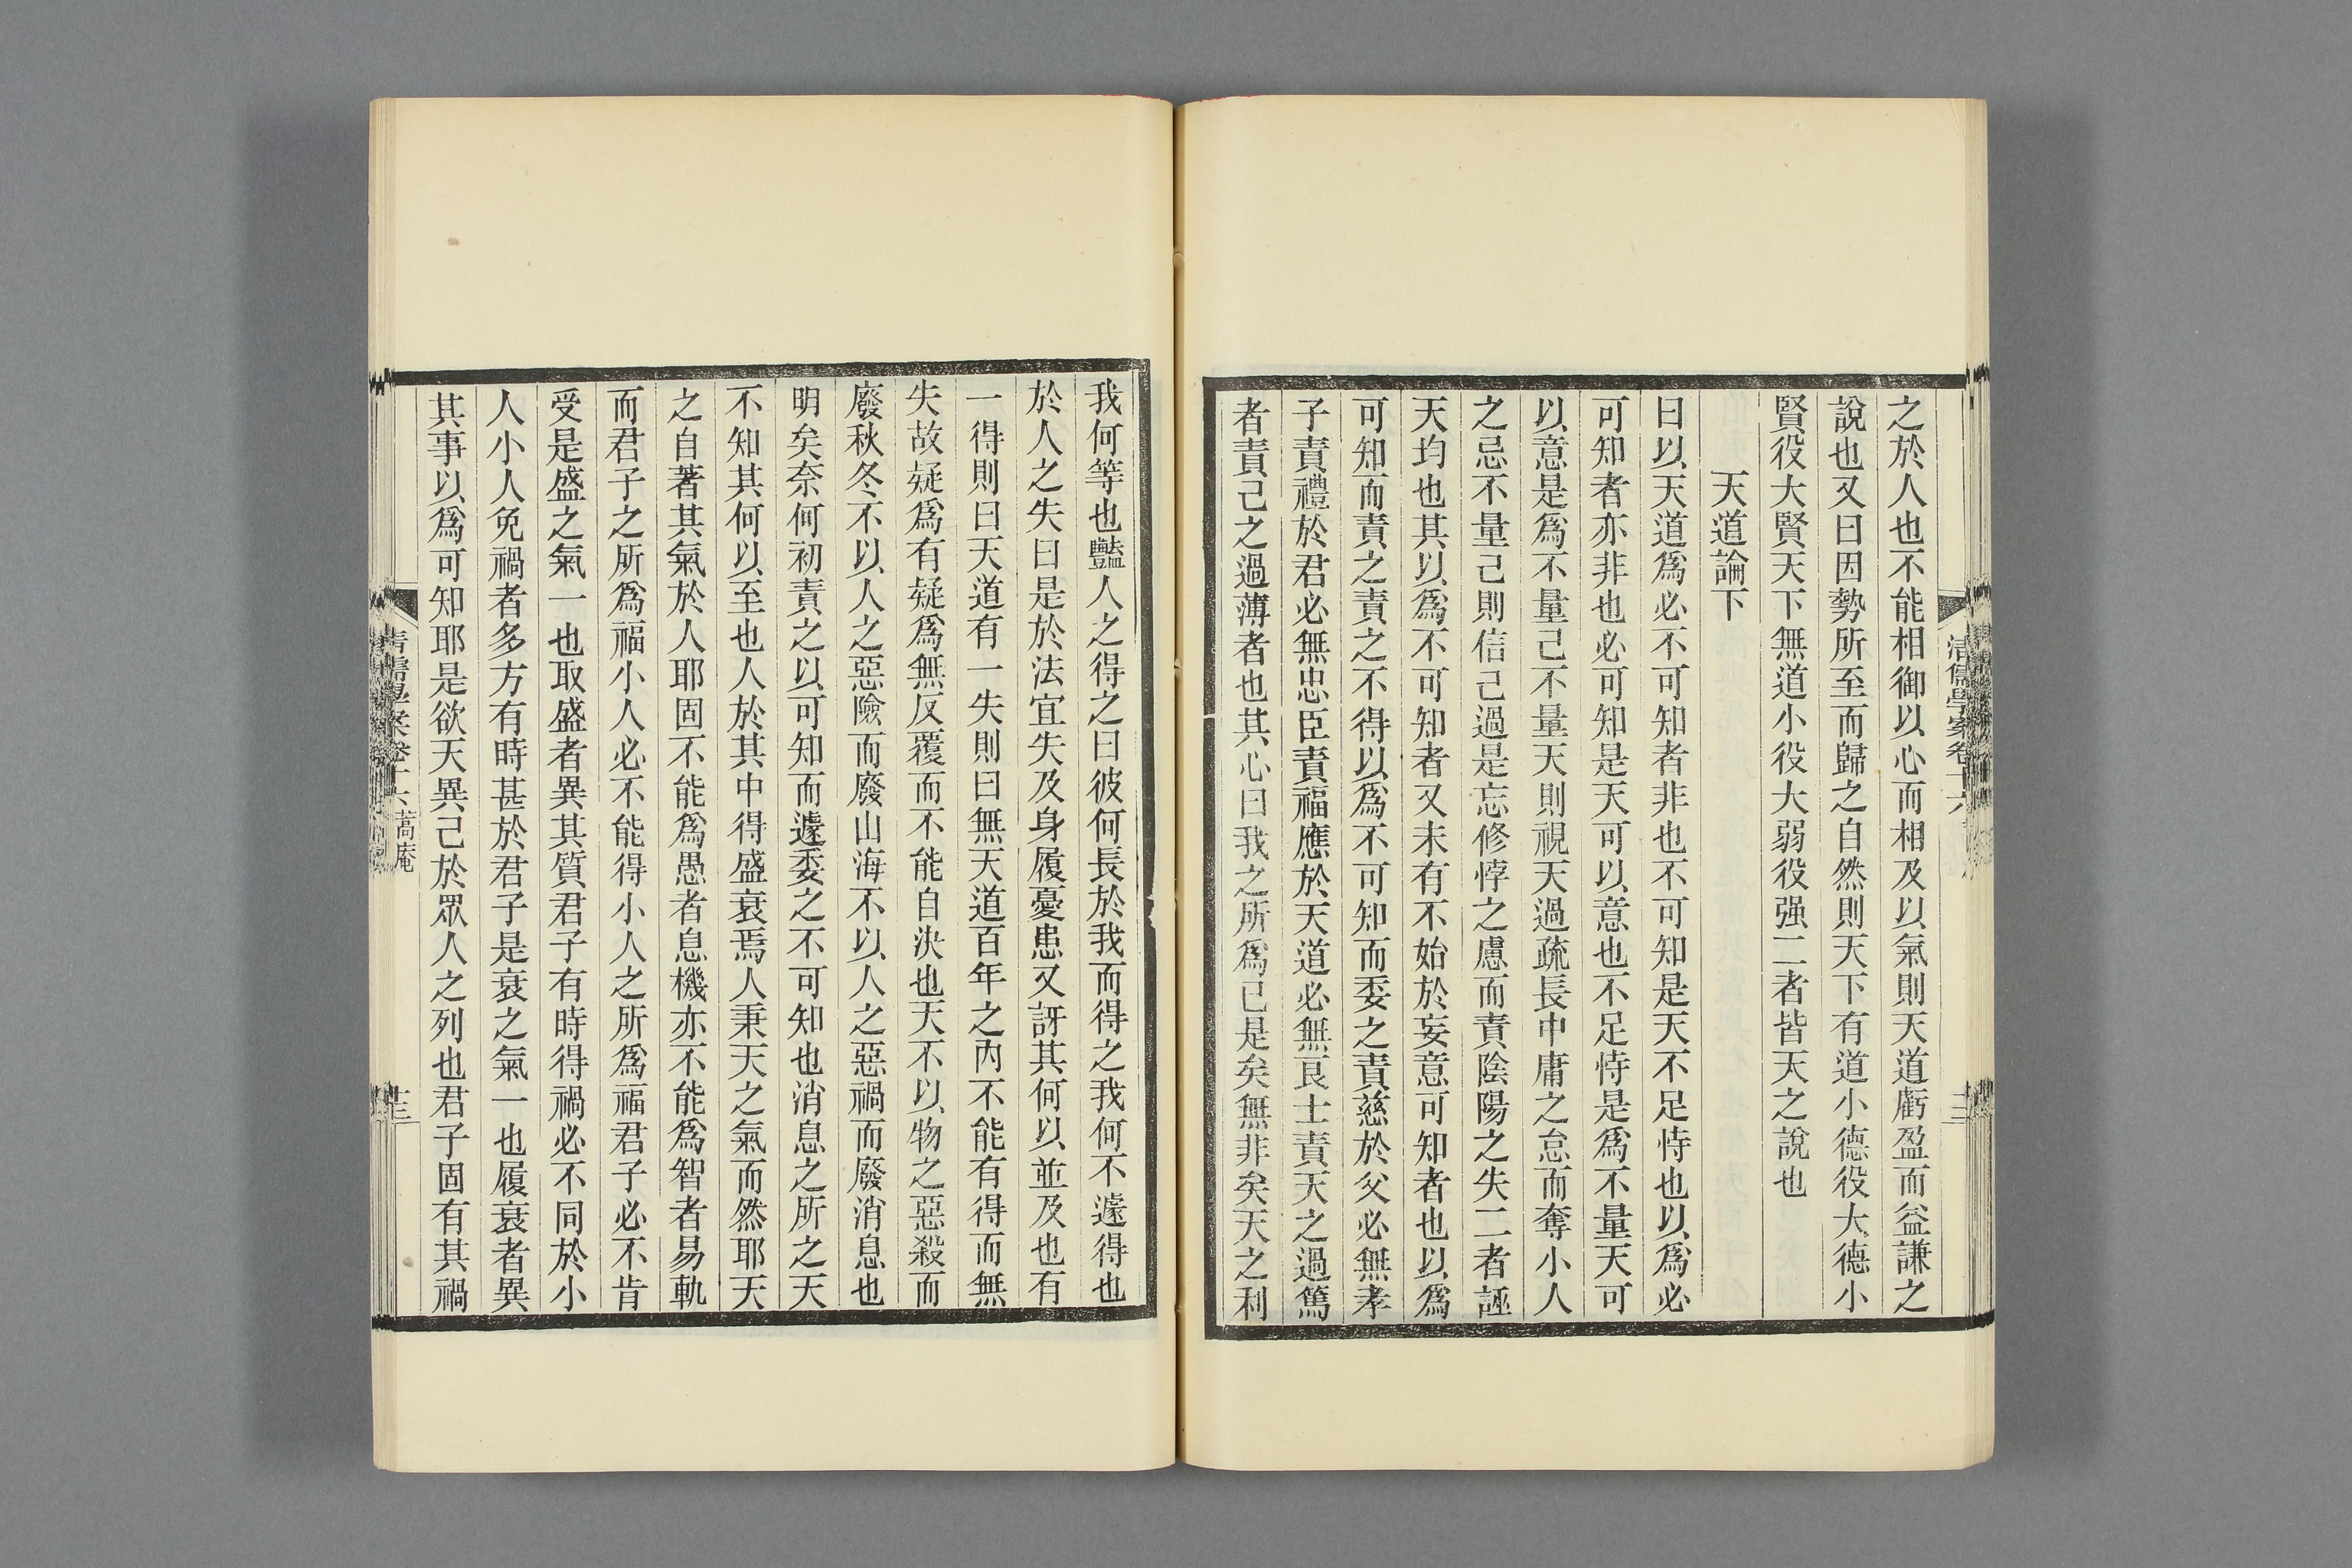 之於人也不能相御以心而相及以氣則天道虧盈而益謙之
說也又曰因勢所至而歸之自然則天下有道小德役大德小
賢役大賢天下無道小役大弱役强二者皆天之說也
天道論下
曰以天道爲必不可知者非也不可知是天不足恃也以爲必
可知者亦非也必可知是天可以意也不足恃是爲不量天可
以意是爲不量己不量天則視天過疏長中庸之怠而奪小人
之忌不量己則信己過是忘修悖之慮而責陰陽之失二者誣
天均也其以爲不可知者又未有不始於妄意可知者也以爲
可知而責之責之不得以爲不可知而委之責慈於父必無孝
子責禮於君必無忠臣責福應於天道必無良士責天之過篤
者責己之過薄者也其心曰我之所爲已是矣無非矣天之利
我何等也豔人之得之曰彼何長於我而得之我何不遽得也
於人之失曰是於法宜失及身履憂患又訝其何以並及也有
一得則曰天道有一失則曰無天道百年之內不能有得而無
失故疑爲有疑爲無反覆而不能自決也天不以物之惡殺而
廢秋冬不以人之惡險而廢山海不以人之惡禍而廢消息也
明矣奈何初責之以可知而遽委之不可知也消息之所之天
不知其何以至也人於其中得盛衰焉人秉天之氣而然耶天
之自著其氣於人耶固不能爲愚者息機亦不能爲智者易軌
而君子之所爲福小人必不能得小人之所爲福君子必不肯
受是盛之氣一也取盛者異其質君子有時得禍必不同於小
人小人免禍者多方有時甚於君子是衰之氣一也履衰者異
其事以爲可知耶是欲天異己於眾人之列也君子固有其禍
清儒學案卷十六 蒿庵